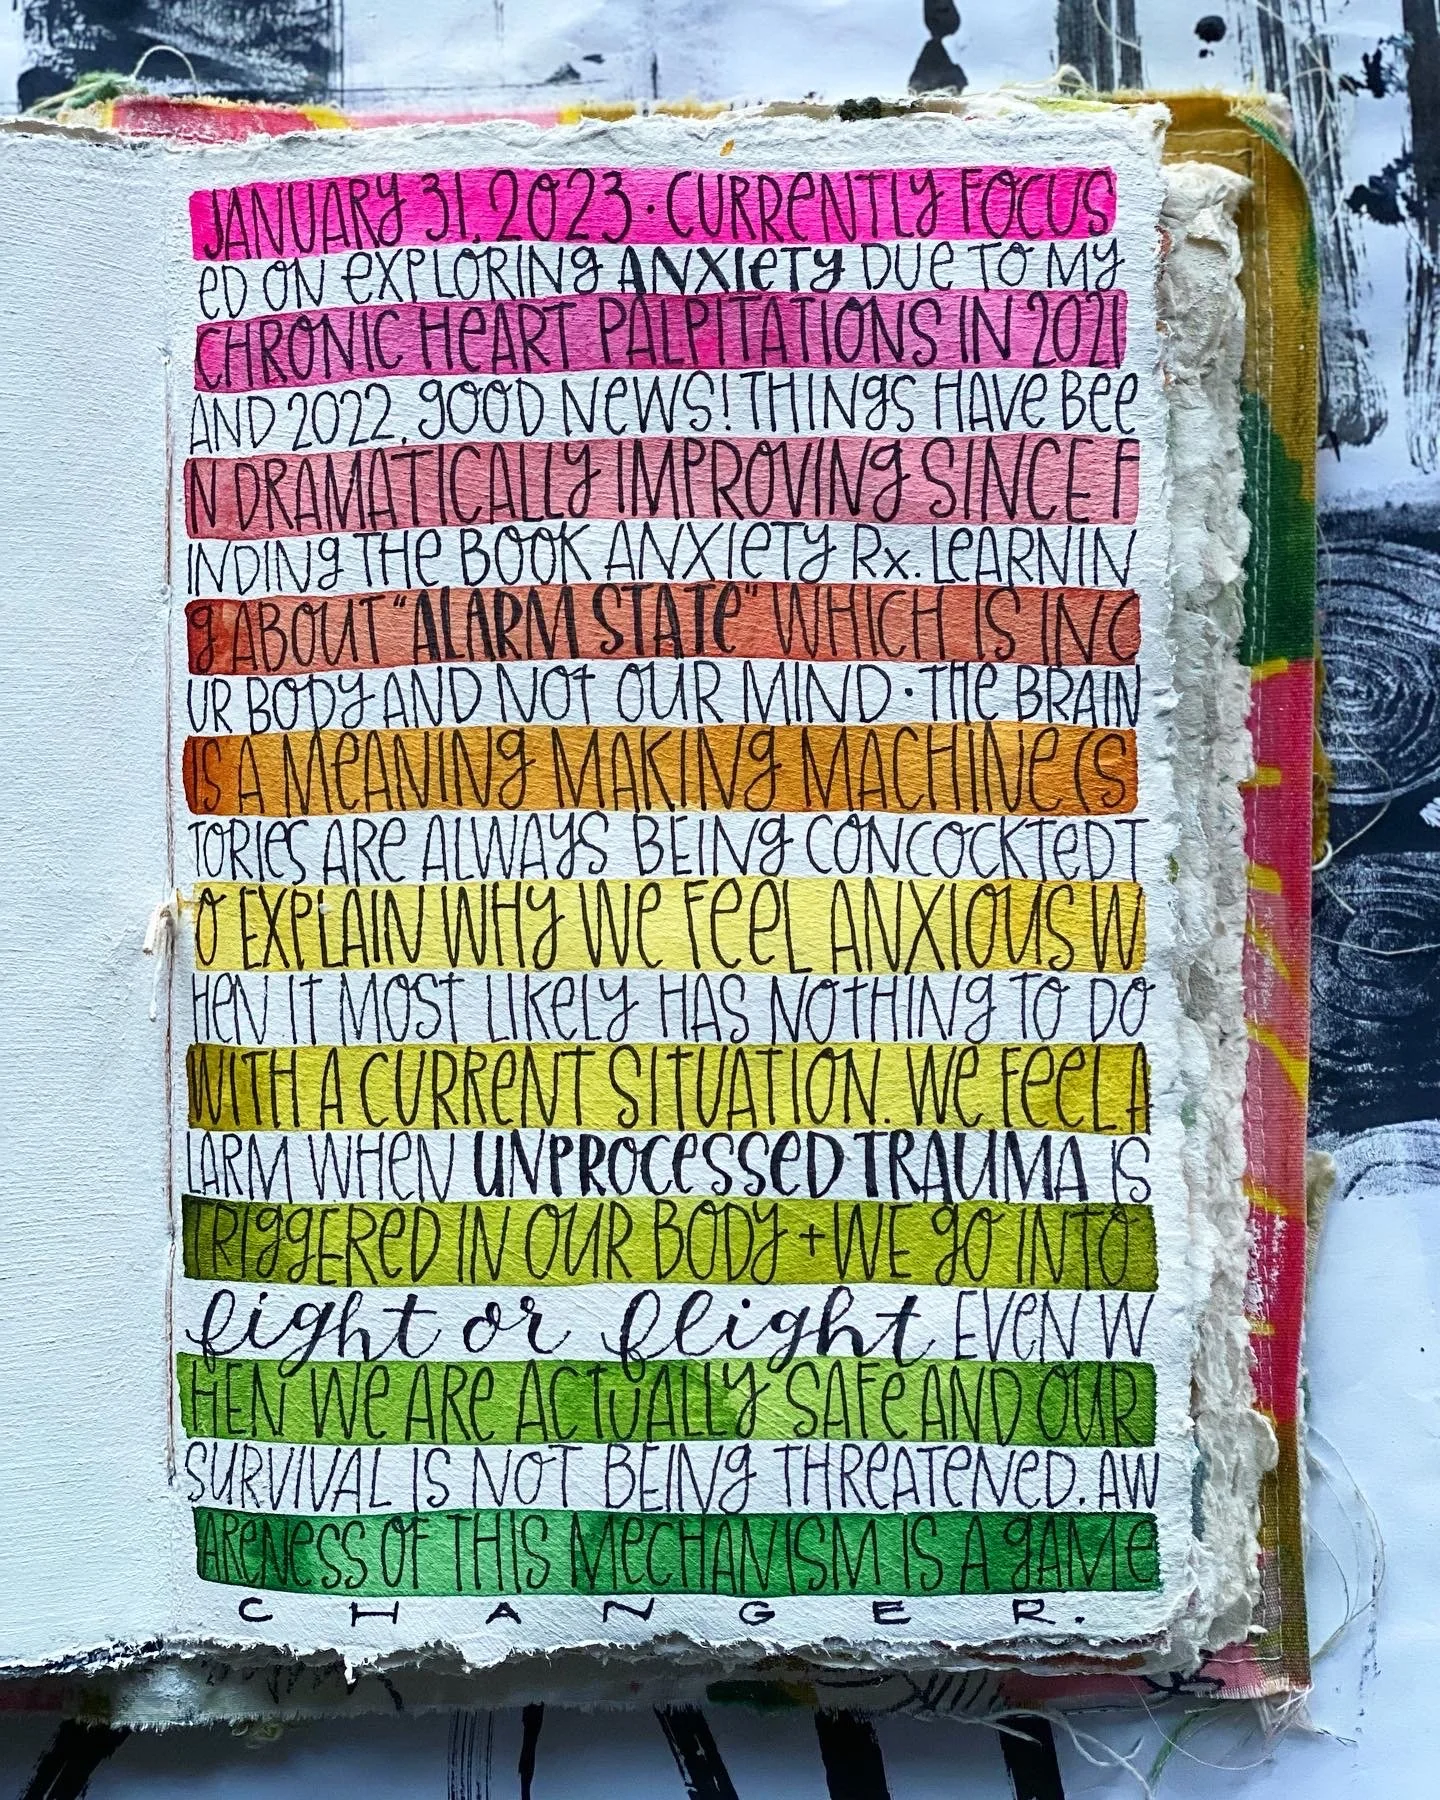 JANUARY 31, 2023 · CURRENTLY FOCUS
ED ON EXPLORING ANXIETY DUE TO MY
CHRONIC HEART PALPITATIONS IN 2021
AND 2022. GOOD NEWS! THINGS HAVE BEE
N DRAMATICALLY IMPROVING SINCE F
INDING THE BOOK ANXIETY Rx. LEARNIN
G ABOUT "ALARM STATE" WHICH IS IN O
UR BODY AND NOT OUR MIND · THE BRAIN
IS A MEANING MAKING MACHINE (S
TORIES ARE ALWAYS BEING CONCOCKTED T
O EXPLAIN WHY WE FEEL ANXIOUS W
HEN IT MOST LIKELY HAS NOTHING TO DO
WITH A CURRENT SITUATION. WE FEEL A
LARM WHEN UNPROCESSED TRAUMA IS
TRIGGERED IN OUR BODY + WE GO INTO
fight or flight EVEN W
HEN WE ARE ACTUALLY SAFE AND OUR
SURVIVAL IS NOT BEING THREATENED. AW
ARENESS OF THIS MECHANISM IS A GAME
CHANGER.